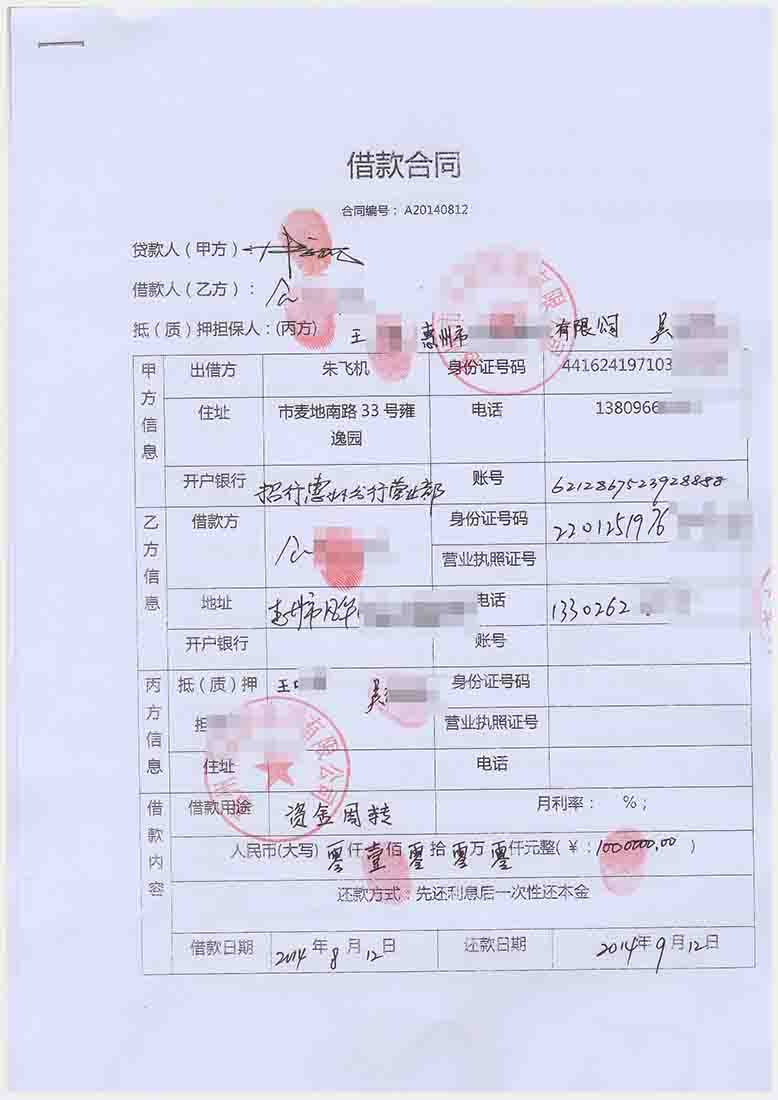 借款合同
合同编号： A20140812
贷款人（甲方）：
借款人（乙方）：
抵（质）押担保人：(丙方) 王 惠州市 有限公司 吴
甲方信息
出借方 朱飞机 身份证号码 441624197103
住址 市麦地南路 33 号雍逸园 电话 1380966
开户银行 招行惠州分行营业部 账号 6212867523928888
乙方信息
借款方 身份证号码 2201251976
营业执照证号
地址 电话 1330262
开户银行 账号
丙方信息
抵（质）押 王 吴 身份证号码
担 营业执照证号
住址 电话
有限公司
借款内容
借款用途 资金周转 月利率： %；
人民币(大写) 零仟壹佰零拾零万零仟元整(￥:1000000.00 )
还款方式：先还利息后一次性还本金
借款日期 2014年8月12日 还款日期 2014年9月12日